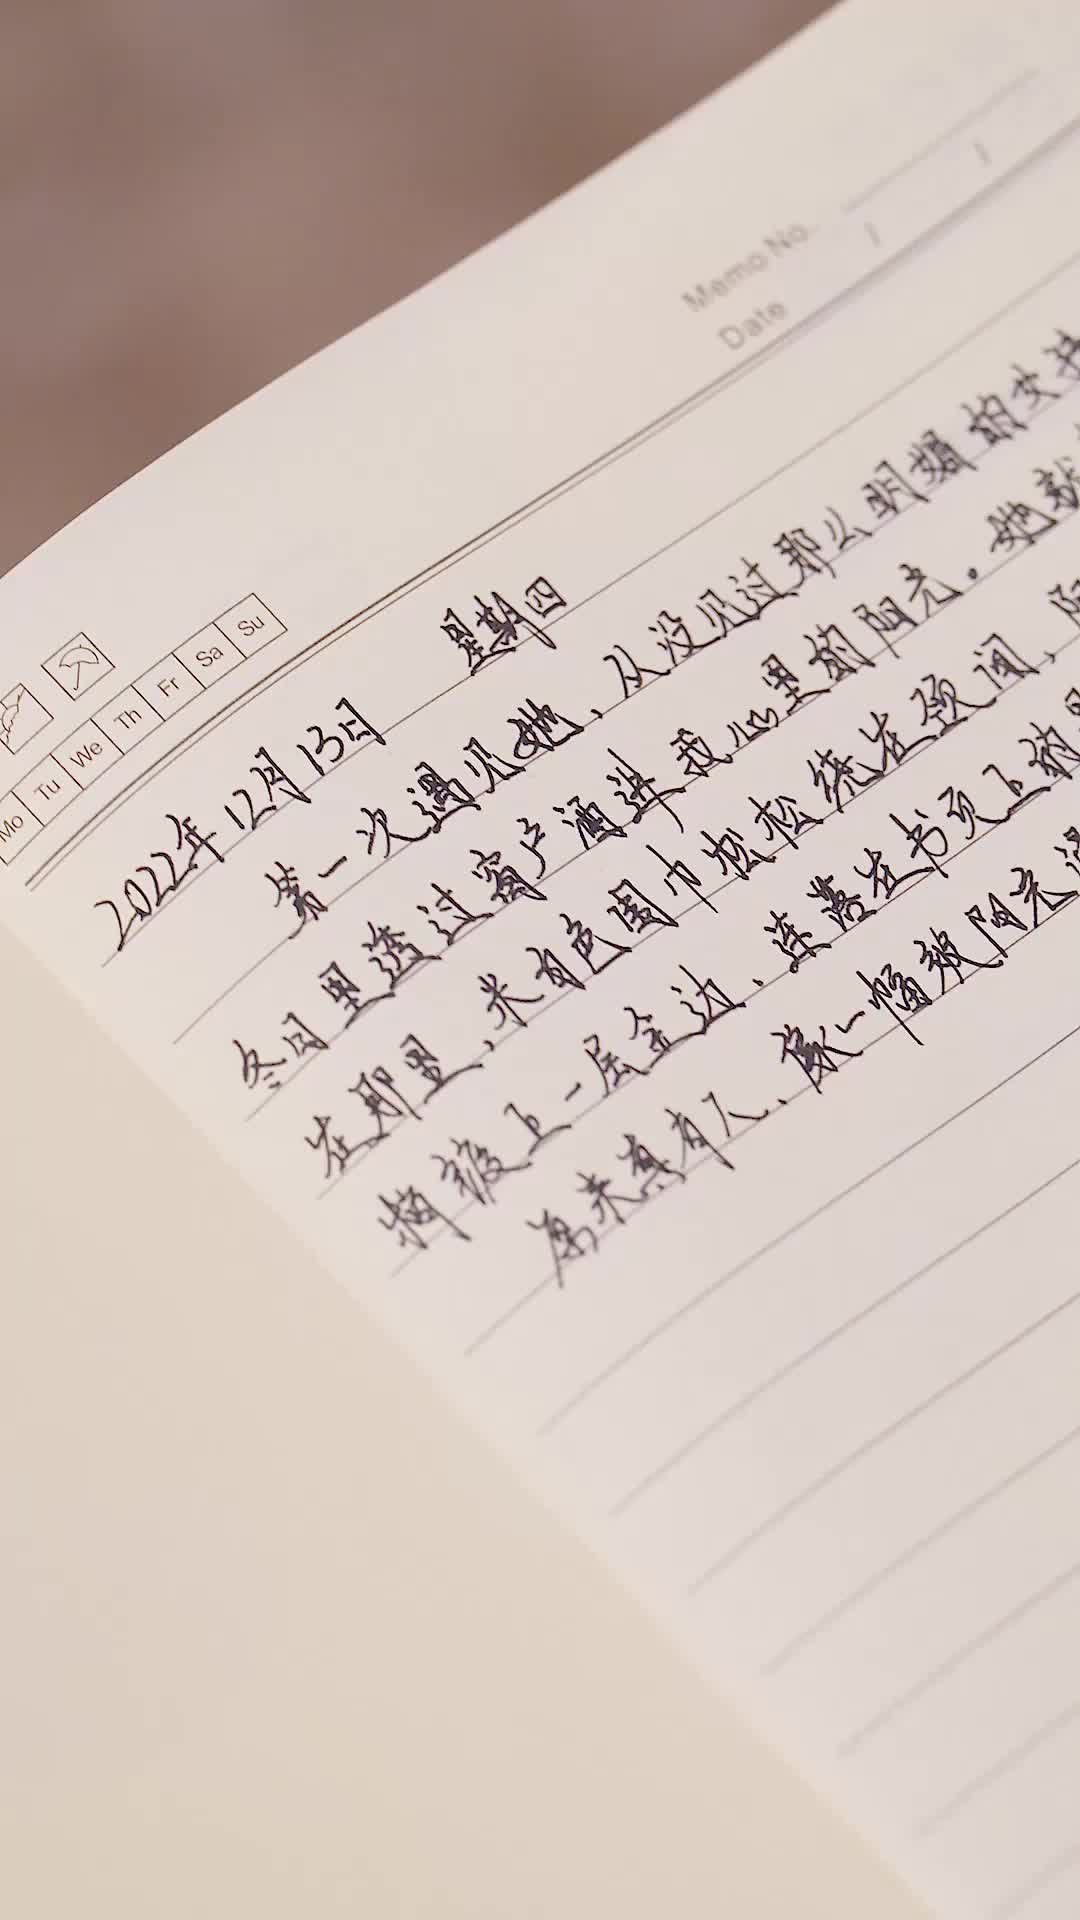 Memo No.
Date / /
Mo Tu We Th Fr Sa Su
2022年12月13日 星期四
第一次遇见她、从没见过那么明媚的女孩
冬日里透过窗户洒进我心里的阳光。她就
在那里、米白色围巾松松绕在颈间、阳
镀上一层金边、连落在书页上的
原来真有人、像一幅被阳光浸